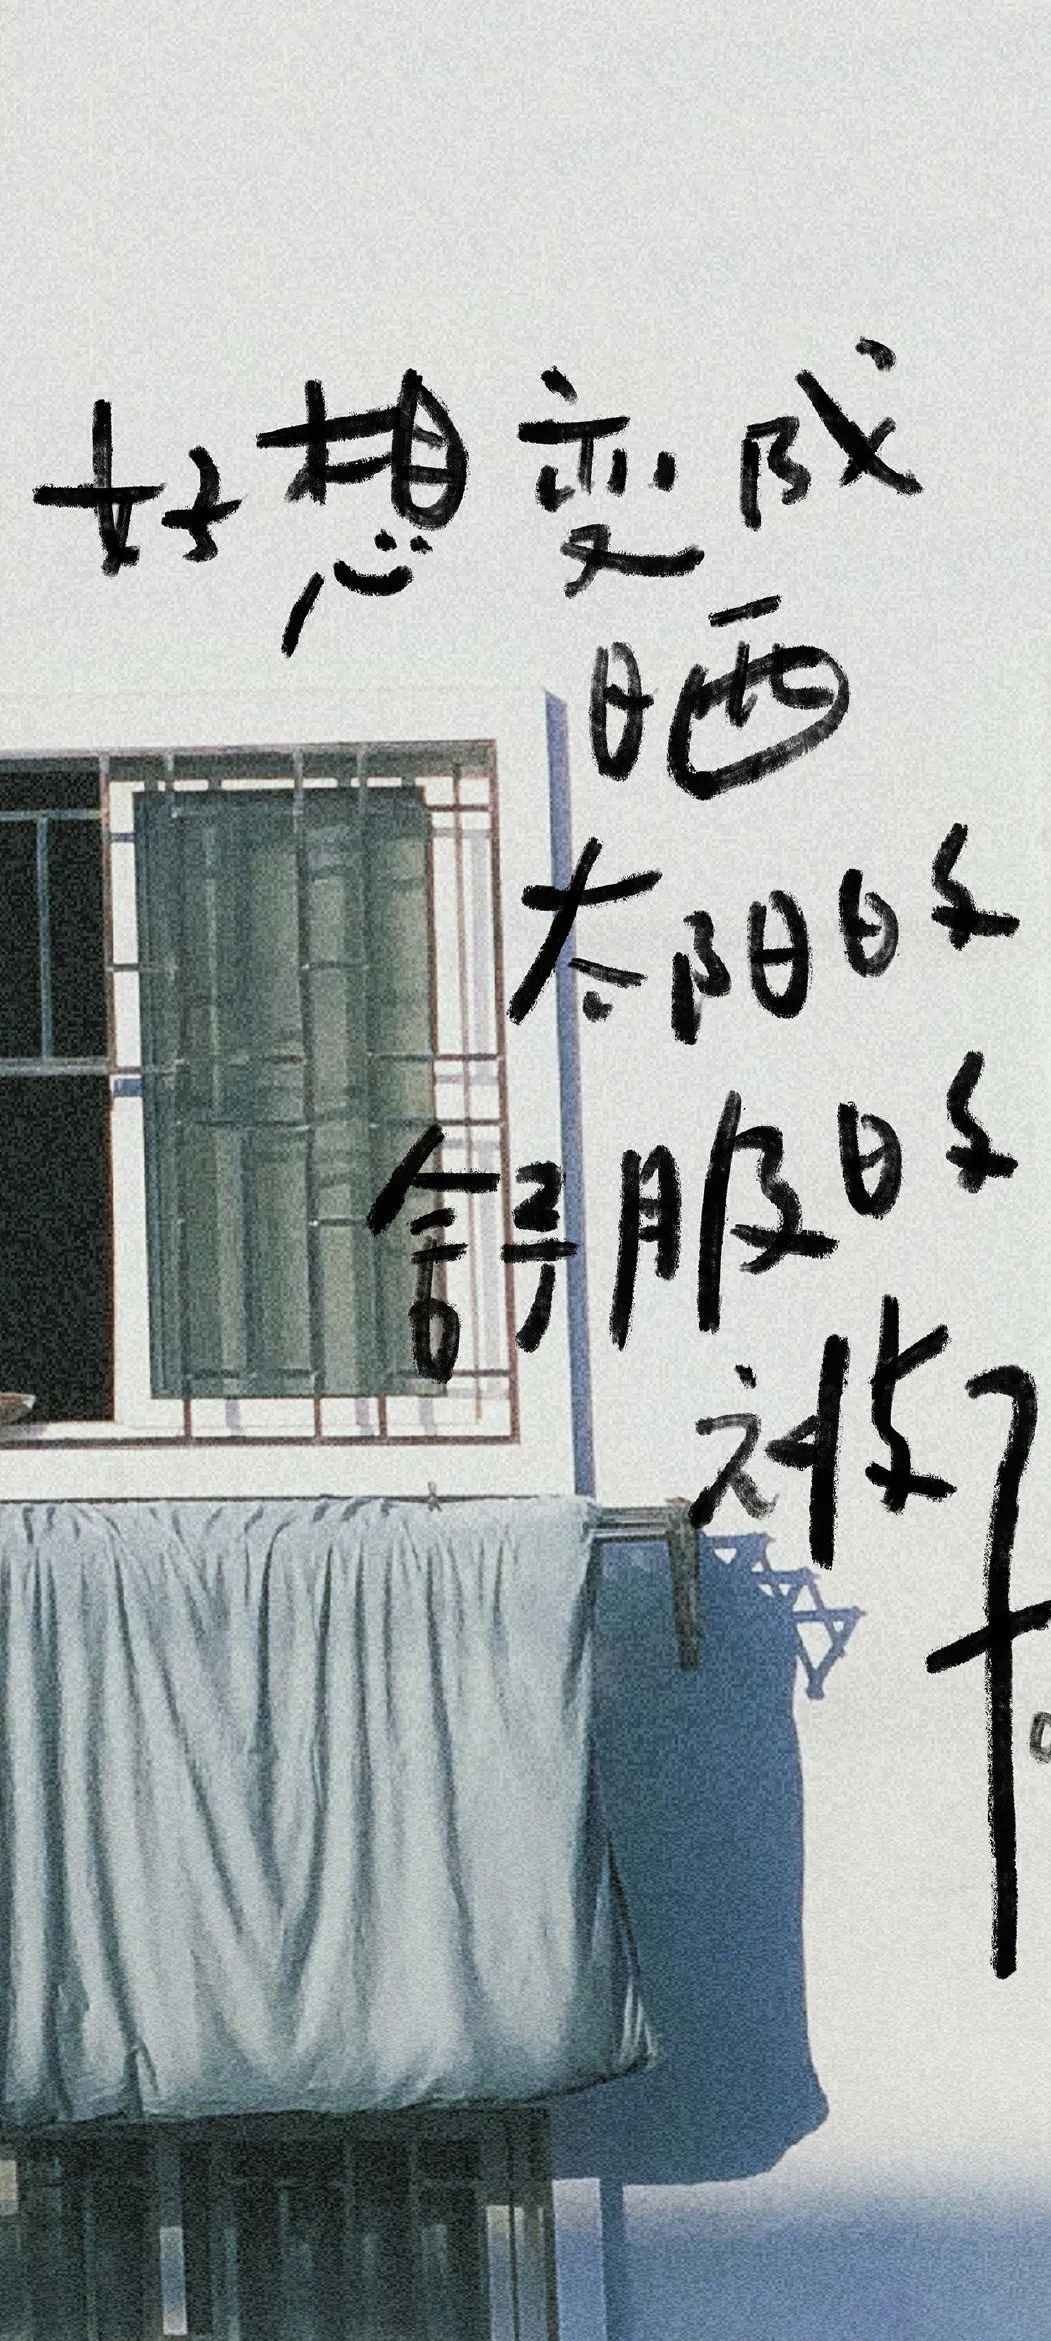 好想变成
晒
太阳的
舒服的
被子。